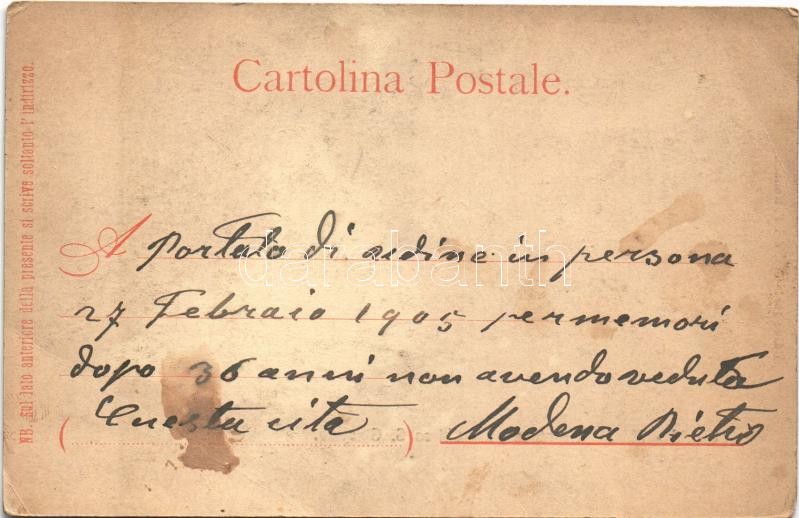 Cartolina Postale.
NB. Sul lato anteriore della presente si scrive soltanto l'indirizzo.
A portato di udine in persona
27 Febraio 1905 per memori
dopo 36 anni non avendo veduta
Questa cita
Modena Pietro
darabanth